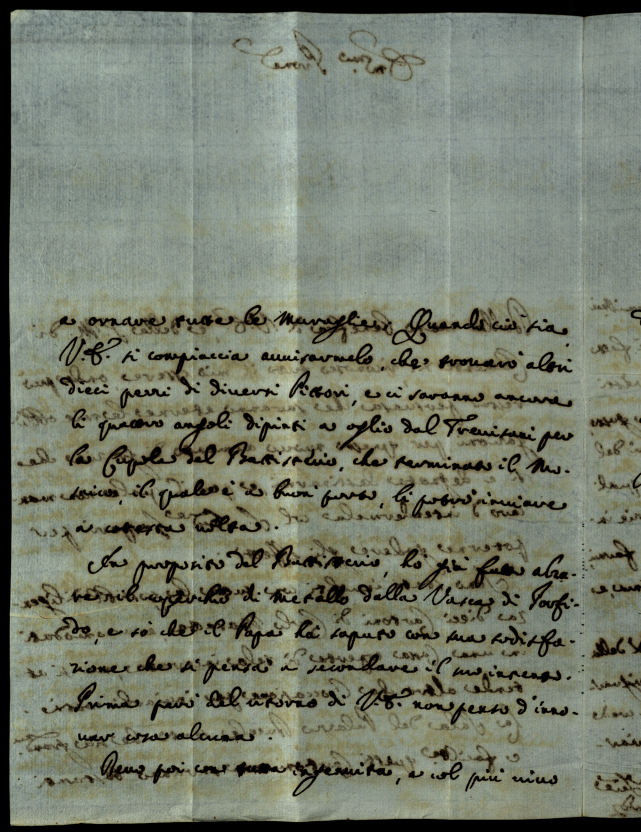 a ornare tutte le Muraglie. Quando ciò sia,
V.E. si compiaccia avvisarmelo, che troverò altri
dieci pezzi di diversi Pittori, e ci saranno ancora
li quattro angoli dipinti a oglio dal Trevisani per
la Cupola del Battisterio, che terminato il Mu-
saico, il quale è a buon porto, li potrò inviare
a cotesta volta.
In proposito del Battisterio, ho già fatto alza-
re il coperchio di Metallo della Vasca di Porfi-
do, e so che il Papa hà saputo con sua sodisfa-
zione che si pensa à secondare il suo intento.
Prima però del ritorno di V.E. non penso d'inno-
var cosa alcuna.
Devo poi con tutta ingenuità, e col più vivo